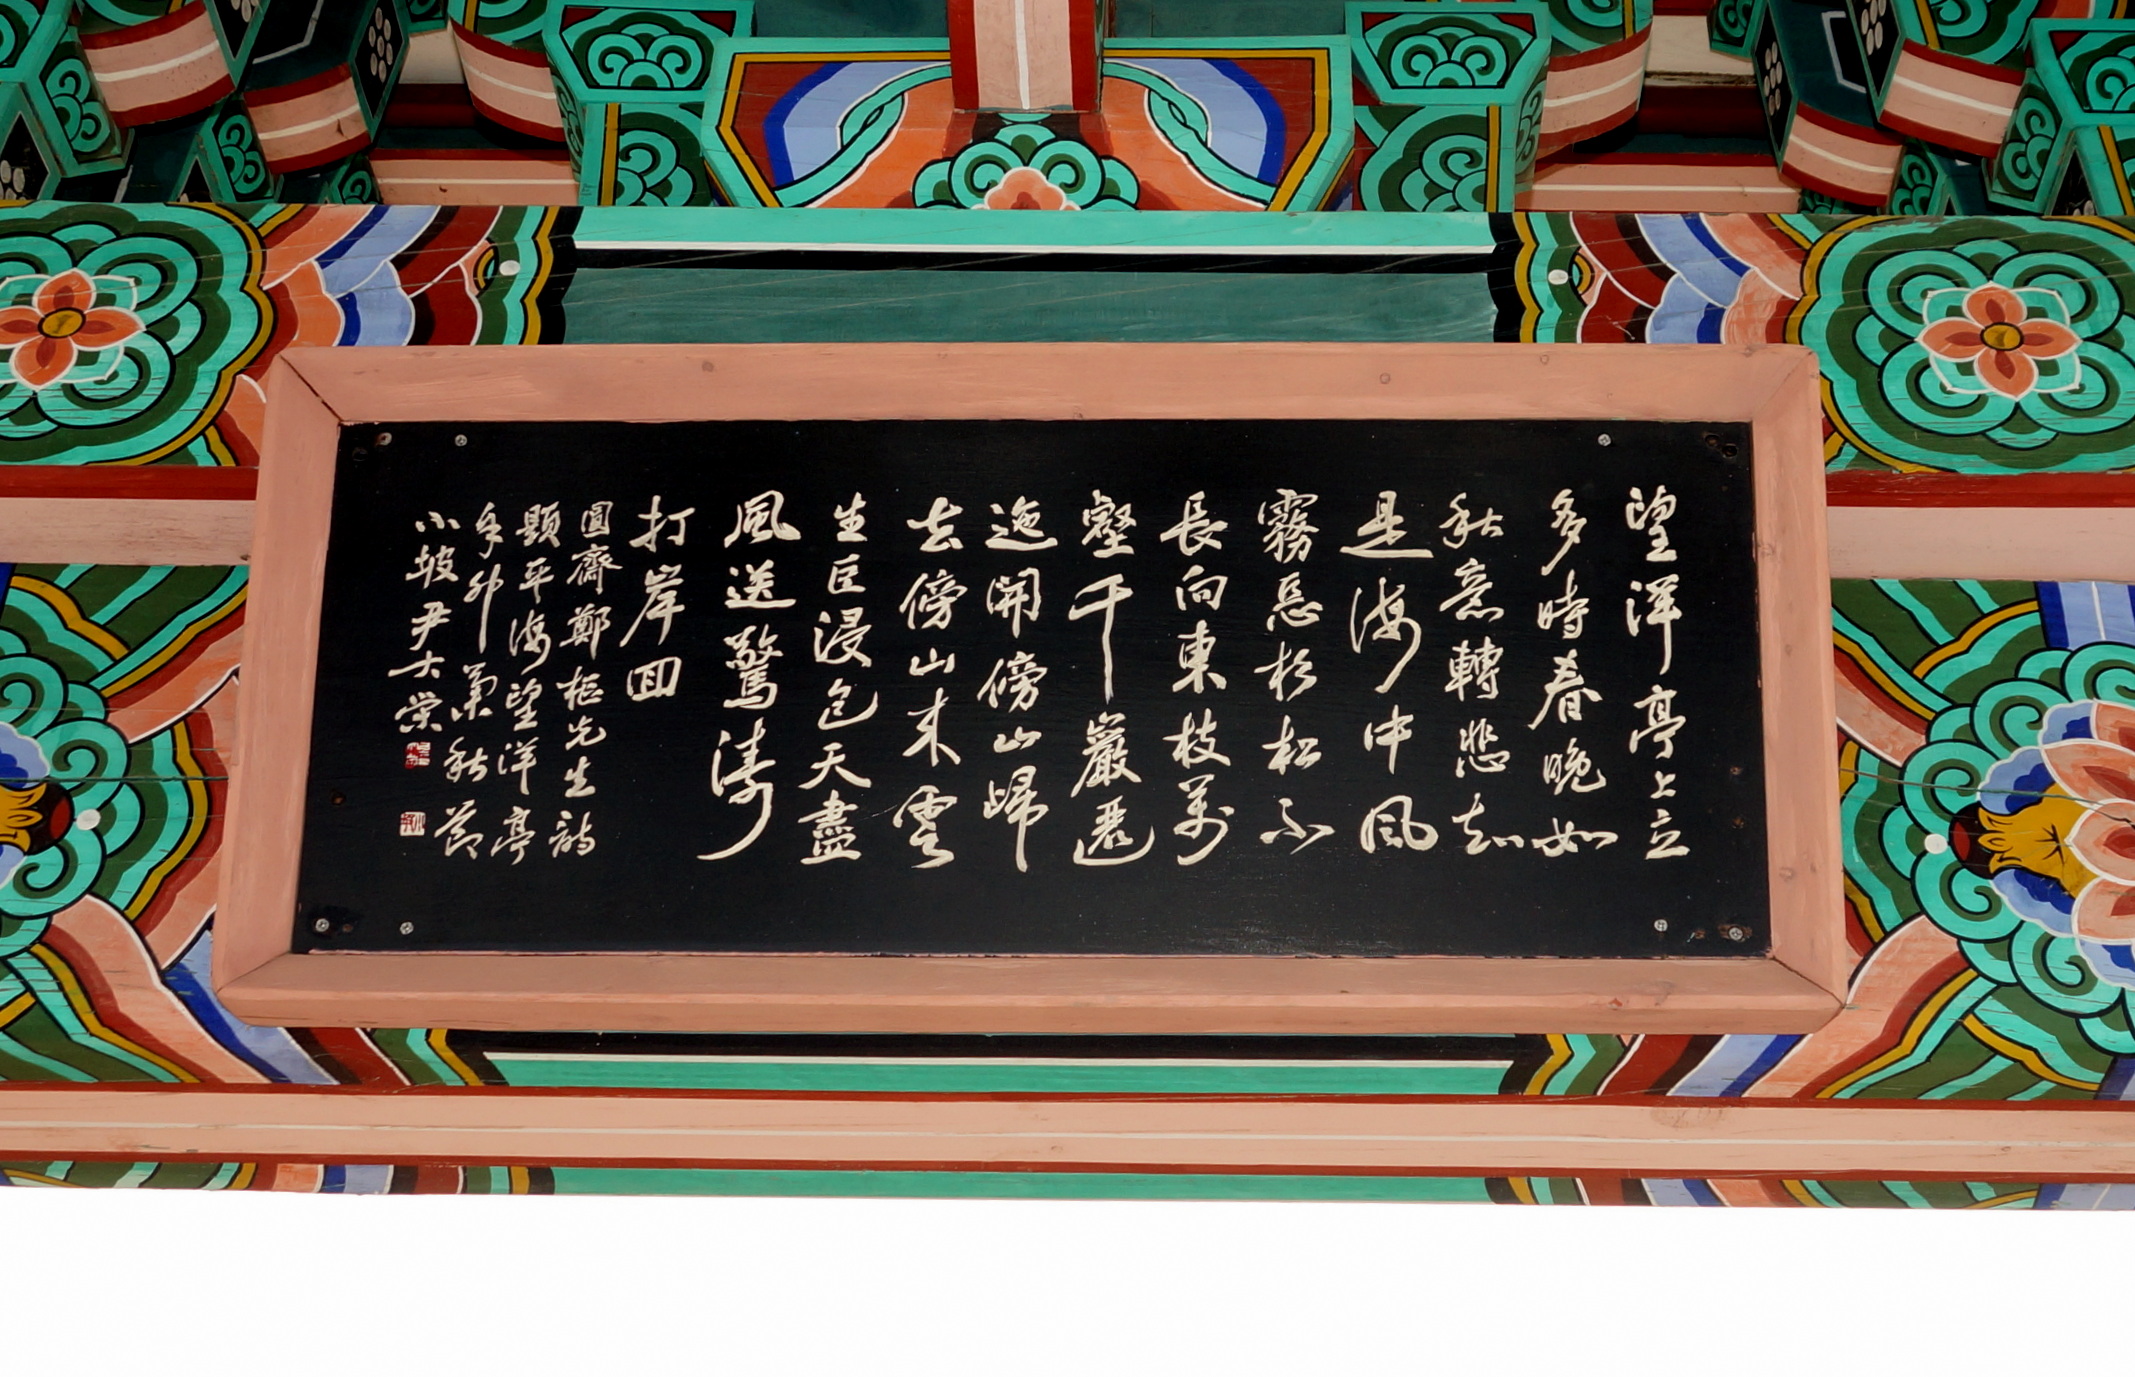 望洋亭上立
多時春晚如
秋意轉悲知
是海中風
霧惡杉松不
長向東枝萬
壑千巖邐
迤開傍山歸
去傍山來雲
生巨浸包天盡
風送驚濤
打岸囬
圓齋鄭樞先生詩
題平海望洋亭
辛卯菊秋節
小坡尹大榮